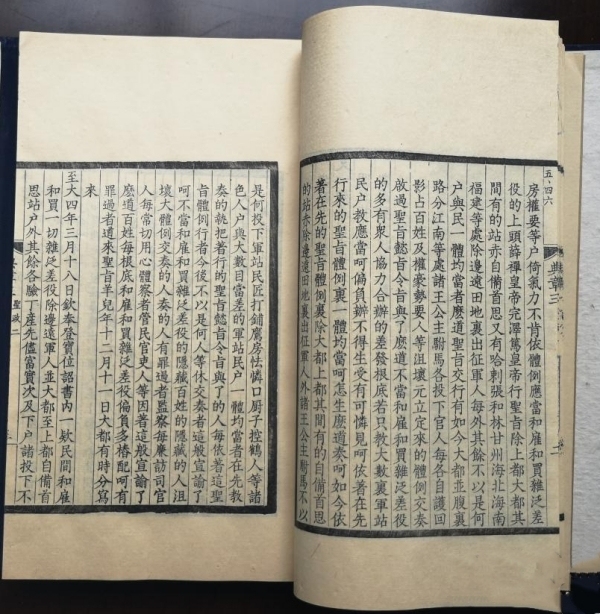 五·四六
房權要等户倚氣力不肯依體例應當和雇和買雜泛差
役的上頭薛禪皇帝完澤篤皇帝行聖旨除上都大都其
間有的站赤自備首思又有哈剌張和林甘州海北海南
福建等處除邊遠田地裏出征軍人每外其餘不以是何
户與民一體均當者麽道聖旨交行有如今大都並腹裏
路分江南等處諸王公主駙馬各投下官人每各自護回
影占百姓及權豪勢要人等沮壞元立定來的體例交奏
啟過聖旨懿旨令旨與了麽道不當和雇和買雜泛差役
的多有衆人協力合辦的差發根底若只教大數裏軍站
民户教應當呵偏負辦不得生受有可憐見呵依著在先
行來的聖旨體例裏一體均當呵怎生麽道奏呵如今依
著在先的聖旨體例裏除大都上都其間有的自備首思
的站赤除邊遠田地裏出征軍人外諸王公主駙馬不以
典章三
是何投下軍站民匠打鋪鷹房怯憐口厨子控鶴人等諸
色人户與大數目當差的軍站民户一體均當者在先教
奏的執把着行的聖旨懿旨令旨與了的人每依著這聖
旨體例行者今後不以是何人等休交奏者這般宣諭了
呵不當和雇和買雜泛差役的隱藏百姓的隱藏的人沮
壞大體例交奏的人奏的人有罪過者監察每廉訪司官
人每常切用心體察者管民官吏人等因著這般宣諭了
麽道百姓每根底和雇和買雜泛差役偏負多樁配呵有
罪過者道來聖旨羊兒年十二月十一日大都有時分寫
來
至大四年三月十八日欽奉登寶位詔書内一欵民間和雇
和買一切雜泛差役除邊遠軍人並大都至上都自備首
思站户外其餘各驗丁産先儘富實次及下户諸投下不
聖政二